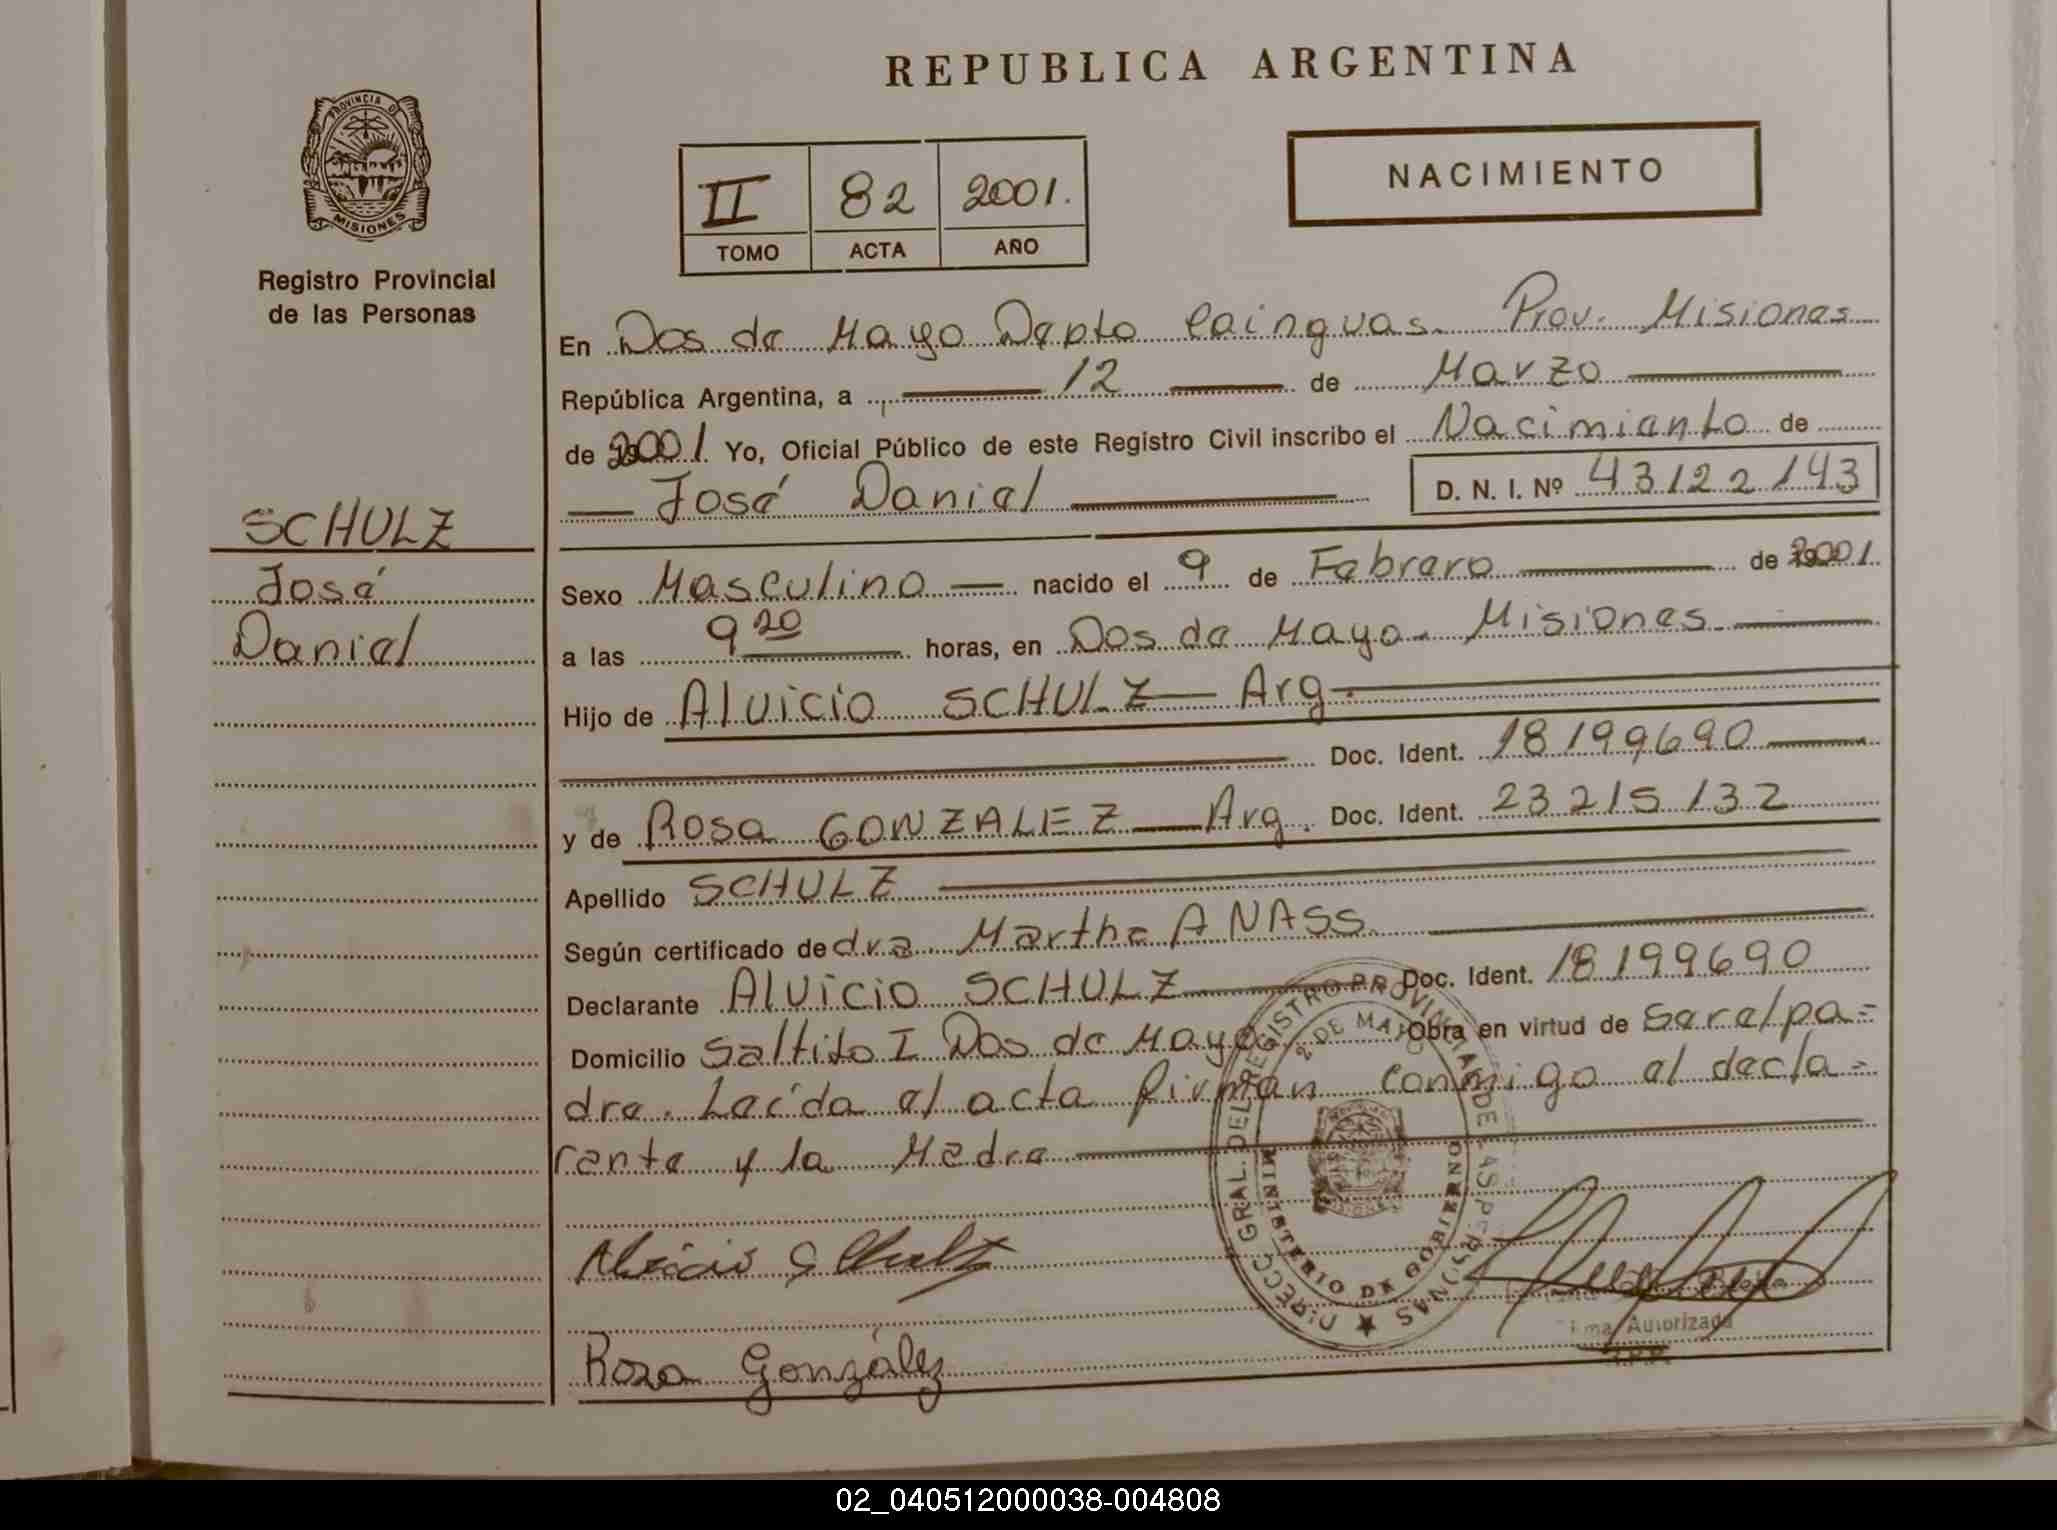 REPUBLICA ARGENTINA
PROVINCIA DE
MISIONES
Registro Provincial
de las Personas
NACIMIENTO
II 82 2001.
TOMO ACTA AÑO
En Dos de Mayo Depto Cainguas. Prov. Misiones
República Argentina, a 12 de Marzo
de 2001 Yo, Oficial Público de este Registro Civil inscribo el Nacimiento de
José Daniel D. N. I. Nº 43122143
SCHULZ
José
Daniel
Sexo Masculino nacido el 9 de Febrero de 2001.
a las 9 20 horas, en Dos de Mayo. Misiones
Hijo de Alvicio SCHULZ Arg.
Doc. Ident. 18199690
y de Rosa GONZALEZ Arg. Doc. Ident. 23215132
Apellido SCHULZ
Según certificado de dra Martha A NASS
Declarante Alvicio SCHULZ Doc. Ident. 18199690
Domicilio Saltito I Dos de Mayo Obra en virtud de Ser el pa=
dre. Leída el acta firman conmigo el decla=
rante y la Madre
DIRECC. GRAL. DEL REGISTRO PROVINCIAL DE LAS PERSONAS
2 DE MAYO
MINISTERIO DE GOBIERNO
Alvicio Schulz
Firma Autorizada
Rosa González
02_040512000038-004808